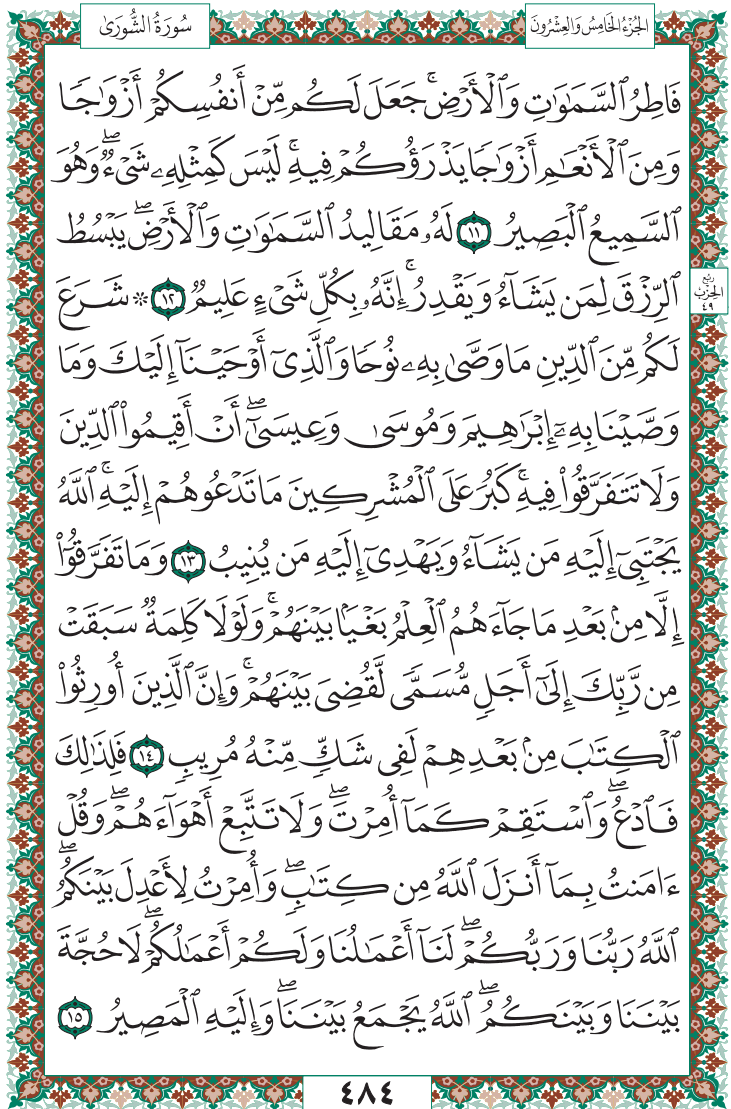 سُورَةُ الشُّورَىٰ
الجُزْءُ الخَامِسُ وَالعِشْرُونَ
فَاطِرُ ٱلسَّمَٰوَٰتِ وَٱلْأَرْضِۚ جَعَلَ لَكُم مِّنْ أَنفُسِكُمْ أَزْوَٰجًا
وَمِنَ ٱلْأَنْعَٰمِ أَزْوَٰجًا يَذْرَؤُكُمْ فِيهِۚ لَيْسَ كَمِثْلِهِۦ شَىْءٌۖ وَهُوَ
ٱلسَّمِيعُ ٱلْبَصِيرُ ١١ لَهُۥ مَقَالِيدُ ٱلسَّمَٰوَٰتِ وَٱلْأَرْضِۖ يَبْسُطُ
ٱلرِّزْقَ لِمَن يَشَآءُ وَيَقْدِرُۚ إِنَّهُۥ بِكُلِّ شَىْءٍ عَلِيمٌ ١٢ ۞ شَرَعَ
رُبْعُ
الحِزْب
٤٩
لَكُم مِّنَ ٱلدِّينِ مَا وَصَّىٰ بِهِۦ نُوحًا وَٱلَّذِىٓ أَوْحَيْنَآ إِلَيْكَ وَمَا
وَصَّيْنَا بِهِۦٓ إِبْرَٰهِيمَ وَمُوسَىٰ وَعِيسَىٰٓۖ أَنْ أَقِيمُوا۟ ٱلدِّينَ
وَلَا تَتَفَرَّقُوا۟ فِيهِۚ كَبُرَ عَلَى ٱلْمُشْرِكِينَ مَا تَدْعُوهُمْ إِلَيْهِۚ ٱللَّهُ
يَجْتَبِىٓ إِلَيْهِ مَن يَشَآءُ وَيَهْدِىٓ إِلَيْهِ مَن يُنِيبُ ١٣ وَمَا تَفَرَّقُوٓا۟
إِلَّا مِنۢ بَعْدِ مَا جَآءَهُمُ ٱلْعِلْمُ بَغْيًۢا بَيْنَهُمْۚ وَلَوْلَا كَلِمَةٌ سَبَقَتْ
مِن رَّبِّكَ إِلَىٰٓ أَجَلٍ مُّسَمًّى لَّقُضِىَ بَيْنَهُمْۚ وَإِنَّ ٱلَّذِينَ أُورِثُوا۟
ٱلْكِتَٰبَ مِنۢ بَعْدِهِمْ لَفِى شَكٍّ مِّنْهُ مُرِيبٍ ١٤ فَلِذَٰلِكَ
فَٱدْعُۖ وَٱسْتَقِمْ كَمَآ أُمِرْتَۖ وَلَا تَتَّبِعْ أَهْوَآءَهُمْۖ وَقُلْ
ءَامَنتُ بِمَآ أَنزَلَ ٱللَّهُ مِن كِتَٰبٍۖ وَأُمِرْتُ لِأَعْدِلَ بَيْنَكُمُۖ
ٱللَّهُ رَبُّنَا وَرَبُّكُمْۖ لَنَآ أَعْمَٰلُنَا وَلَكُمْ أَعْمَٰلُكُمْۖ لَا حُجَّةَ
بَيْنَنَا وَبَيْنَكُمُۖ ٱللَّهُ يَجْمَعُ بَيْنَنَاۖ وَإِلَيْهِ ٱلْمَصِيرُ ١٥
٤٨٤